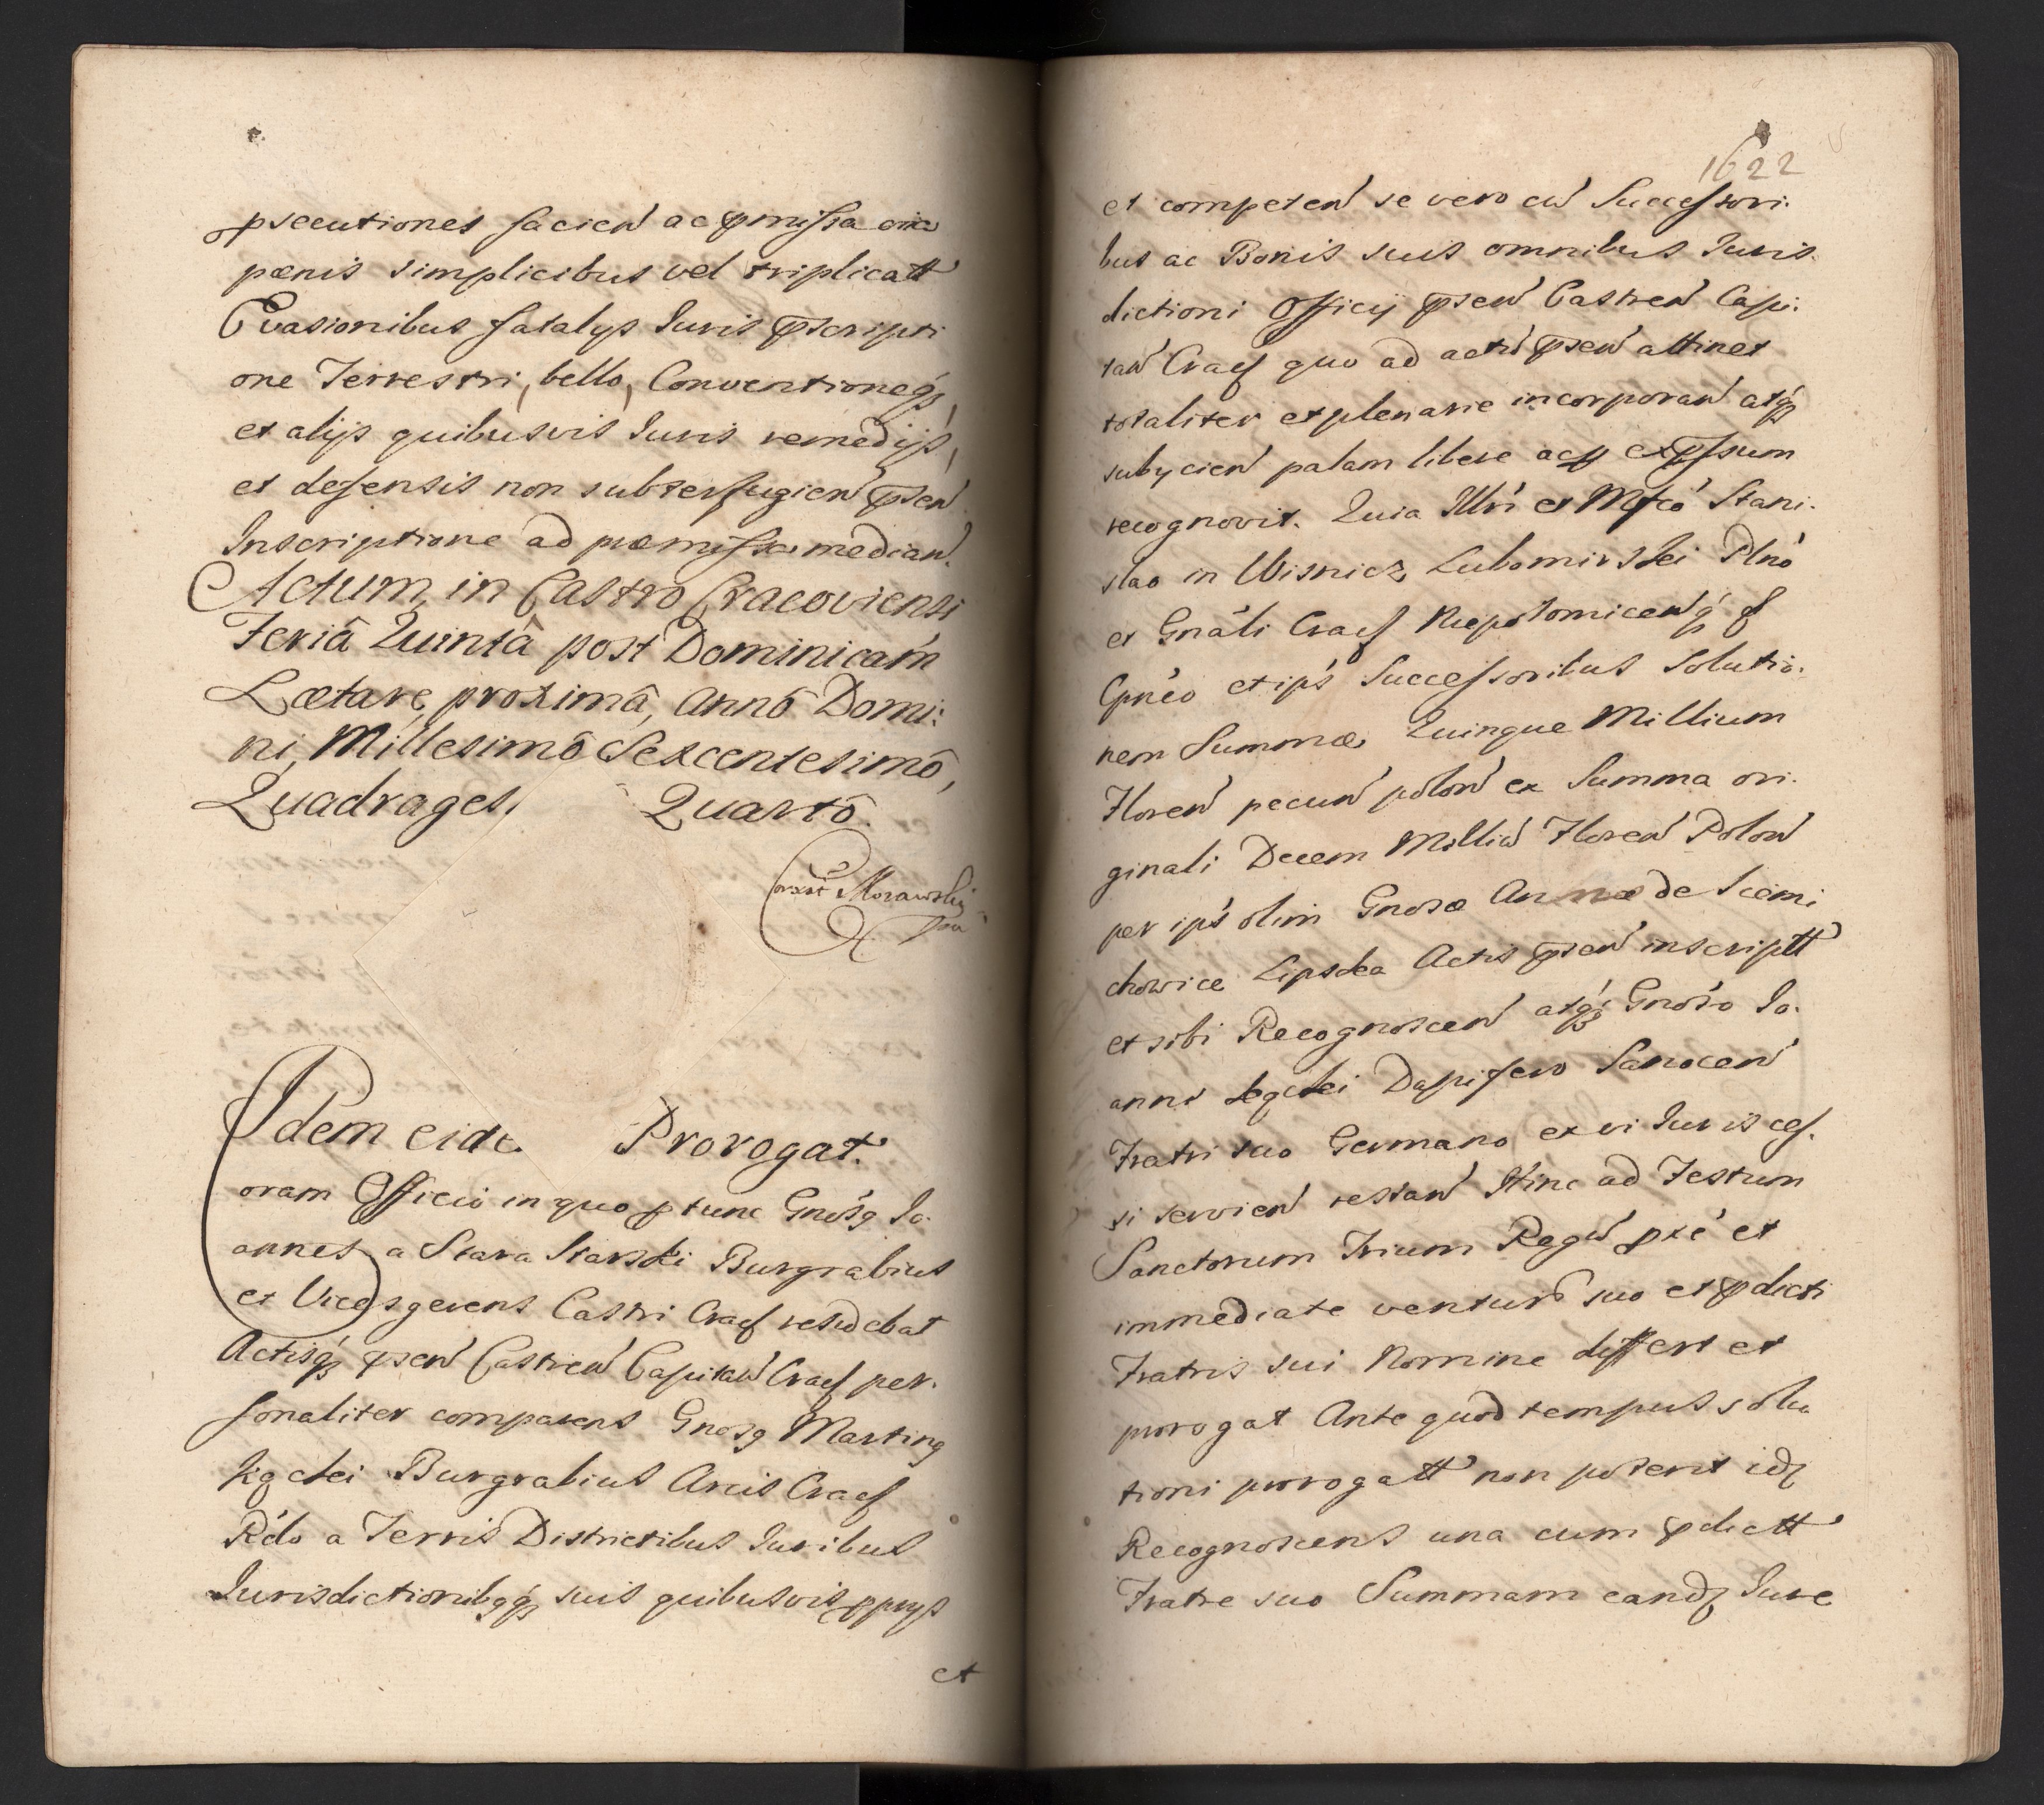 psecutiones facien ac pmissa oia
pœnis simplicibus vel triplicatt
Evasionibus fatalijs Iuris pscripti
one Terrestri, bello, Conventioneq₃,
et alijs quibusvis Iuris remedijs,
et defensis non subterfugien psen
Inscriptione ad præmissa median.
Actum, in Castro Cracoviensi
Feriâ Quintâ post Dominicam
Lætare, proximâ, Annô Domi:
ni, Millesimô Sexcentesimô,
Quadrages. Quartô.
Morawskij
Idem eide. Prorogat.
oram Officio in quo p tunc Gnosq Io.
annes a Scara Starski Burgrabius
et Vicesgerens Castri Cracs residebat
Actisq₃ psen Castren Capitan Cracs per.
sonaliter comparens Gnosq Martinq
Burgrabius Arcis Cracs
Rdo a Terris Districtibus Iuribus
Iurisdictionibq₃ suis quibusvis pprijs
et
1622
et competen se vero cu Successori.
bus ac Bonis suis omnibus Iuris.
dictioni Officij psen Castren Capi.
tan Cracs quo ad actu psen attinet
totaliter et plenarie incorporan atq₃
subijcien palam libere acq expssum
recognovit. Quia Illri et Mfco Stani.
slao in Wisnicz Lubomirski Plno
et Gnali Cracs Niepolomicenq
et ips Successoribus Solutio.
nem Summæ Quinque Millium
Floren pecun polon ex Summa ori.
ginali Decem Milliu Floren Polon
per ips olim Gnosæ Annæ de Sciemi
chowice Lipska Actis psen inscriptt
et sibi Recognoscen atq₃ Gnoso Io.
anni Dapifero Sanocen
Fratri suo Germano ex vi Iuris ces.
si servien restan Hinc ad Festum
Sanctorum Trium Regu pxe et
immediate ventur suo et pdicti
Fratris sui Nomine differt et
prorogat Ante quod tempus solu
tioni prorogatt non poterit id₃
Recognoscens una cum pdictt
Fratre suo Summam eand₃ Iure